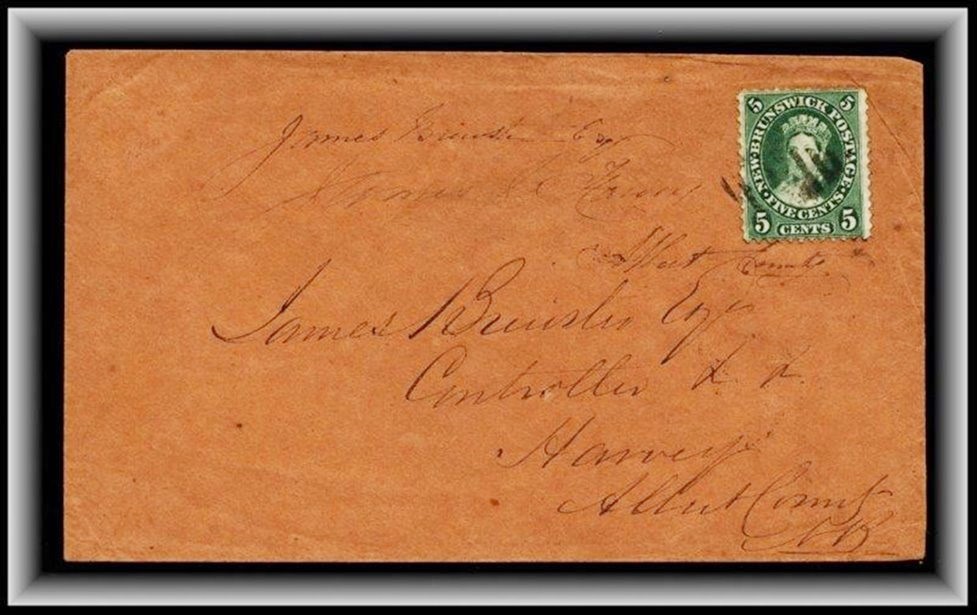 5 5
NEW·BRUNSWICK POSTAGE·
FIVE CENTS
5 CENTS 5
James Esq
James
Albert County
James Brewster Esq
Controller &. &.
Harvey
Albert County
NB